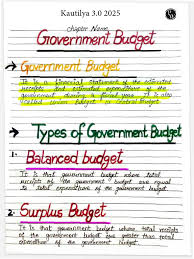 Kautilya 3.0 2025
chapter Name
Government Budget
→ Government Budget
It is a financial statement of the estimated
receipts and estimated expenditure of the
government during a fiscal year. It is also
called union budget or Central Budget.
→ Types of Government Budget
1. Balanced budget
It is that government budget where total
receipts of the government budget are equal
to total expenditure of the government budget.
2. Surplus Budget
It is that government budget where total receipts
of the government budget are greater than total
expenditure of the government budget.